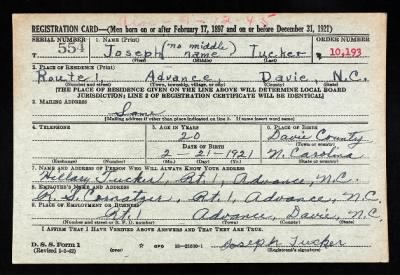 REGISTRATION CARD—(Men born on or after February 17, 1897 and on or before December 31, 1921)
SERIAL NUMBER
1. NAME (Print)
ORDER NUMBER
554
Joseph (no middle name) Tucker
10,193
(First) (Middle) (Last)
2. PLACE OF RESIDENCE (Print)
Route 1, Advance, Davie, N.C.
(Number and street) (Town, township, village, or city) (County) (State)
[THE PLACE OF RESIDENCE GIVEN ON THE LINE ABOVE WILL DETERMINE LOCAL BOARD
JURISDICTION; LINE 2 OF REGISTRATION CERTIFICATE WILL BE IDENTICAL]
3. MAILING ADDRESS
Same
[Mailing address if other than place indicated on line 2. If same insert word same]
4. TELEPHONE
5. AGE IN YEARS
6. PLACE OF BIRTH
20
Davie County
DATE OF BIRTH
(Town or county)
2 21 1921
N. Carolina
(Exchange) (Number) (Mo.) (Day) (Yr.) (State or country)
7. NAME AND ADDRESS OF PERSON WHO WILL ALWAYS KNOW YOUR ADDRESS
Tucker, Rt. 1, Advance, N.C.
8. EMPLOYER'S NAME AND ADDRESS
Cornatzer, Rt. 1, Advance, N.C.
9. PLACE OF EMPLOYMENT OR BUSINESS
Rt. 1 Advance, Davie, N.C.
(Number and street or R. F. D. number) (Town) (County) (State)
I AFFIRM THAT I HAVE VERIFIED ABOVE ANSWERS AND THAT THEY ARE TRUE.
D. S. S. Form 1
Joseph Tucker
(Registrant's signature)